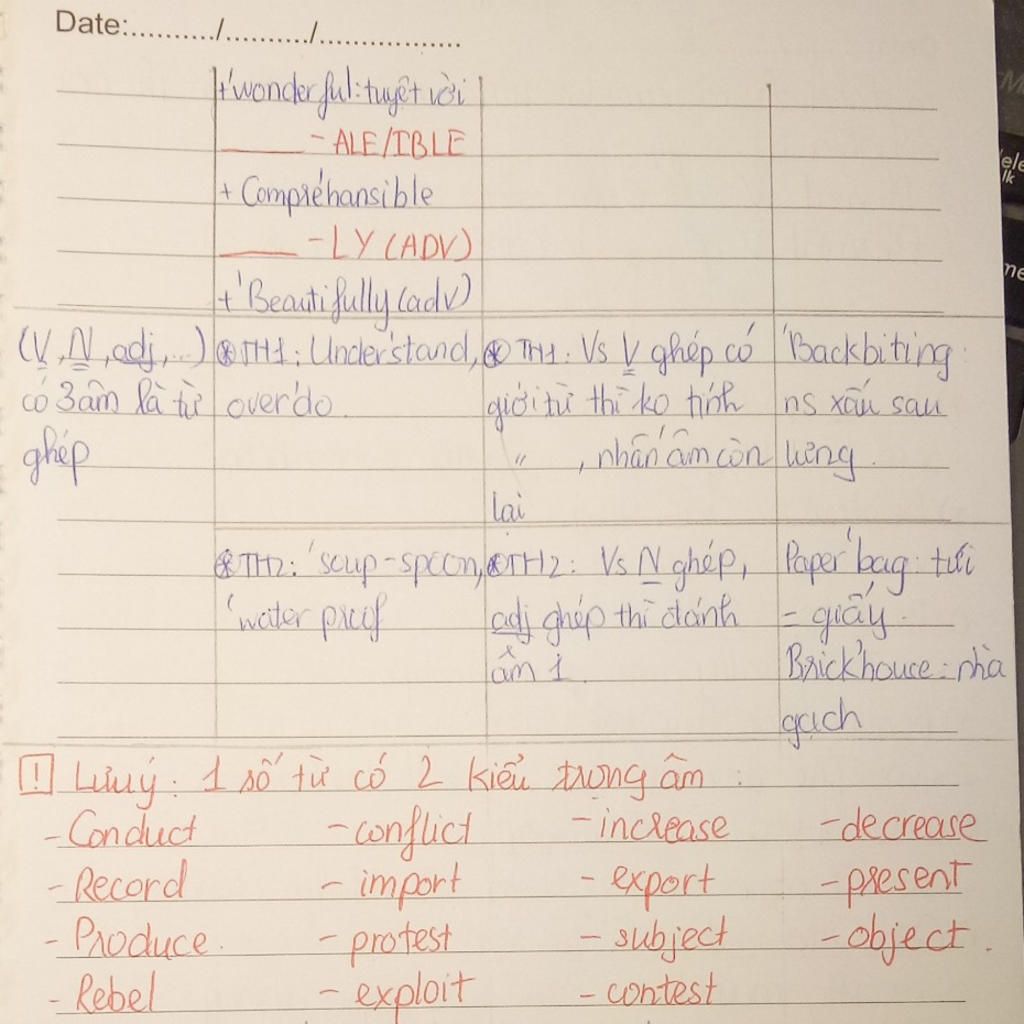 Date:........../........../.................
+'wonderful: tuyệt vời
- ALE/IBLE
+ Compre'hansible
- LY (ADV)
+ 'Beautifully (adv)
(V, N, adj, ...)
có 3 âm là từ
ghép
⊛ TH1: Under'stand,
over'do.
⊛ TH1: Vs V ghép có
giới từ thì ko tính
〃 , nhấn âm còn
lại
'Backbiting:
ns xấu sau
lưng.
⊛ TH2: 'soup-spoon,
'water proof
⊛ TH2: Vs N ghép,
adj ghép thì đánh
âm 1.
Paper'bag: túi
= giấy.
Brick'house: nhà
gạch
! Lưu ý: 1 số từ có 2 kiểu trọng âm:
- Conduct - conflict - increase - decrease
- Record - import - export - present
- Produce. - protest - subject - object.
- Rebel - exploit - contest